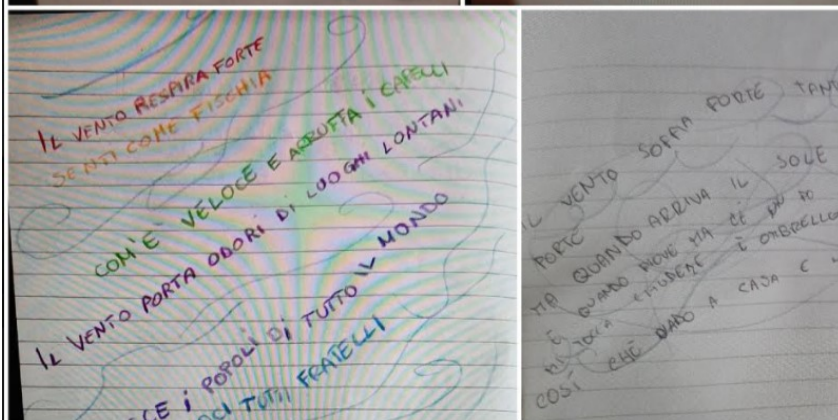 IL VENTO RESPIRA FORTE
SENTI COME FISCHIA
COM'È VELOCE E ARRUFFA i CAPELLI
IL VENTO PORTA ODORI Di LUOGHI LONTANi
CE i POPOLi Di TUTTO IL MONDO
CI TUTTi FRATELLI
IL VENTO SOFFIA FORTE TANT
FORTE
MA QUANDO ARRIVA IL SOLE
E QUANDO PIOVE MA CÈ
MI TOCCA CHIUDERE L OMBRELLO
COSÌ CHE VADO A CASA E